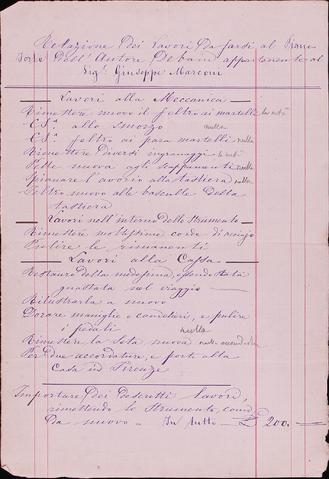 Relazione dei Lavori da farsi al Piano
forte dell'Autore Debain appartenente al
Sigr. Giuseppe Marconi
Lavori alla Meccanica
Rimettere nuovo il feltro ai martelli
C.S.a allo smorzo nulla
C.S.a feltro ai para martelli nulla
Rimettere diversi
Pelle nuova agli scappamenti nulla
Spianare l'avorio alla tastiera nulla
Feltro nuovo alle bascule della
tastiera
Lavori nell'interno dello strumento
Rimettere moltissime corde di
Pulire le rimanenti
Lavori alla Cassa
Restauro della medesima, essendo stata
guastata sul viaggio
Rilustrarla a nuovo
Dorare maniglie e candelieri, e pulire
i pedali nulla
Rimettere la Seta nuova nulla
Per due accordature, e porti alla
Casa in Firenze
Importare dei descritti lavori,
rimettendo lo Strumento, come
da nuovo In tutto £ 200.